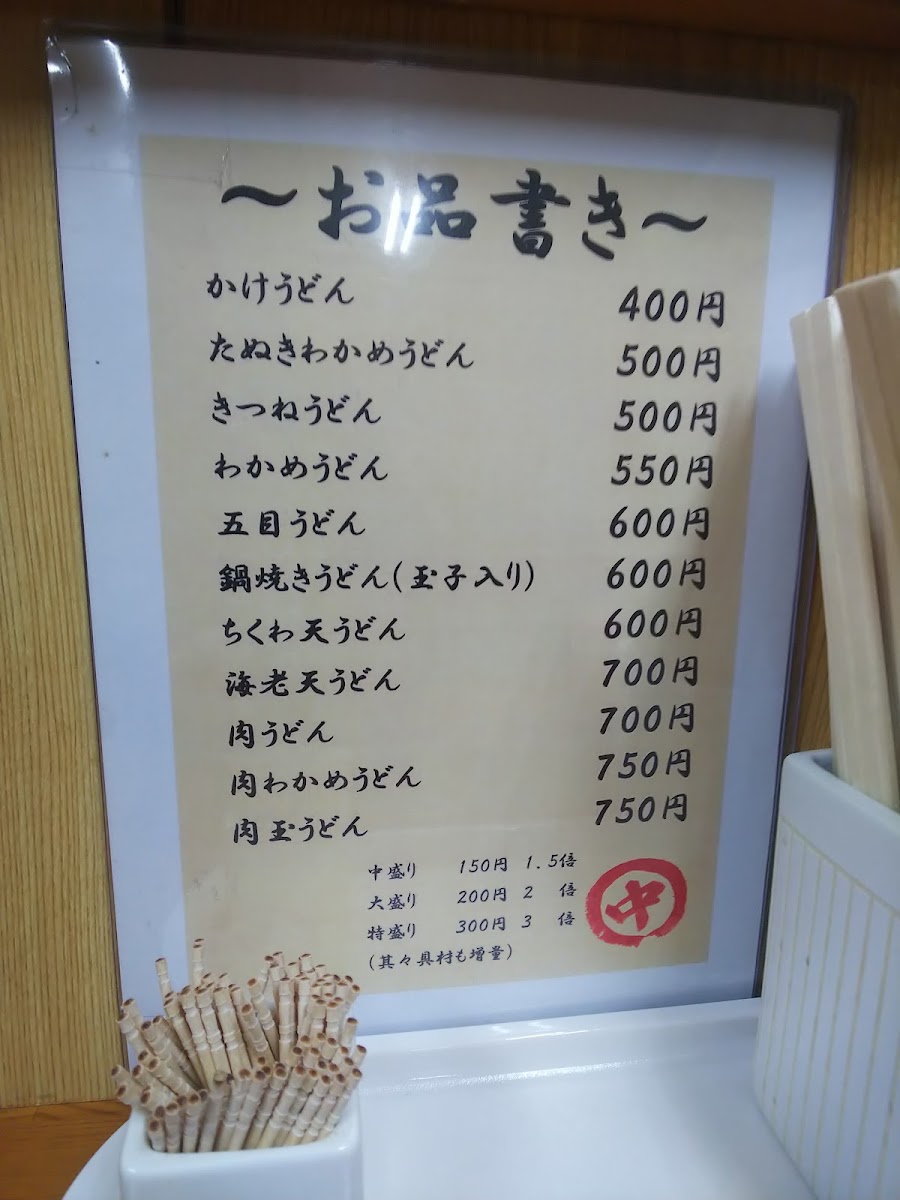 ～お品書き～
かけうどん 400円
たぬきわかめうどん 500円
きつねうどん 500円
わかめうどん 550円
五目うどん 600円
鍋焼きうどん(玉子入り) 600円
ちくわ天うどん 600円
海老天うどん 700円
肉うどん 700円
肉わかめうどん 750円
肉玉うどん 750円
中盛り 150円 1.5倍
大盛り 200円 2 倍
特盛り 300円 3 倍
(其々具材も増量)
中